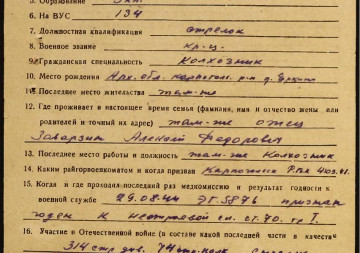 5. Образование 3кл.
6. На ВУС 134
7. Должностная квалификация стрелок
8. Военное звание кр-ц.
9. Гражданская специальность Колхозник
10. Место рождения Арх. обл. Каргопол. р-н д.
11. Последнее место жительства там-же
12. Где проживает в настоящее время семья (фамилия, имя и отчество жены или
родителей и точный их адрес) там-же отец
Заварзин Алексей Федорович
13. Последнее место работы и должность там-же Колхозник
14. Каким райгорвоенкоматом и когда призван Каргопольск. РВК
15. Когда и где проходил последний раз медкомиссию и результат годности к
военной службе 29.08.44 ЭГ 5876 признан
годен к нестроевой сл. ст. 70. гр I.
16. Участие в Отечественной войне (в составе какой последней части в качестве
314 стр. див. 74